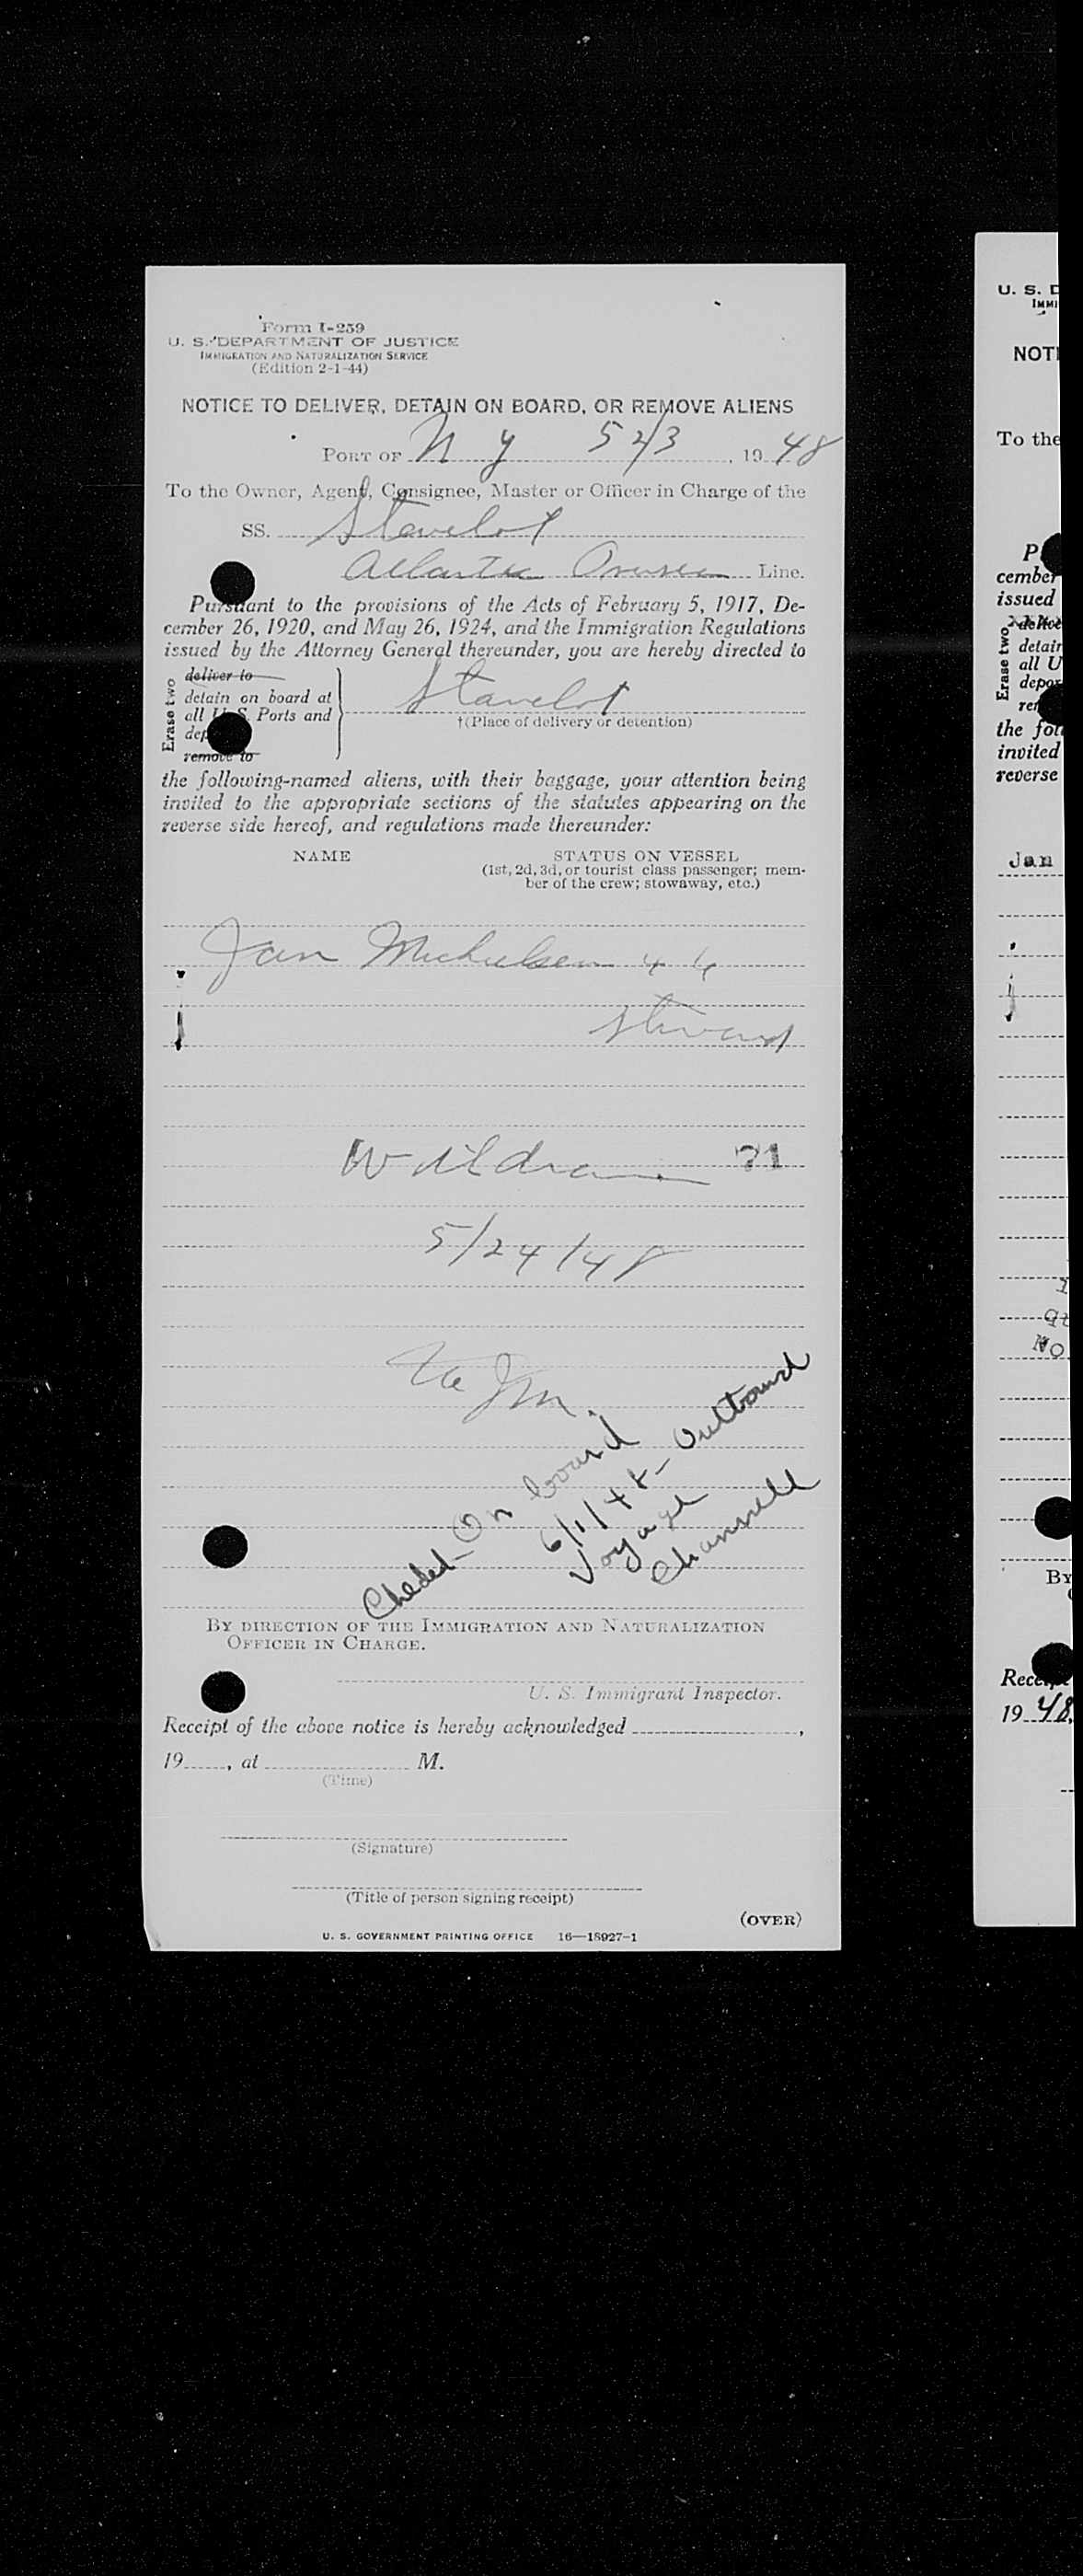 Form I-259
U. S. DEPARTMENT OF JUSTICE
IMMIGRATION AND NATURALIZATION SERVICE
(Edition 2-1-44)
NOTICE TO DELIVER, DETAIN ON BOARD, OR REMOVE ALIENS
PORT OF N Y 5 23, 1948
To the Owner, Agent, Consignee, Master or Officer in Charge of the
SS. Stavelot
Atlantic Line.
Pursuant to the provisions of the Acts of February 5, 1917, De-
cember 26, 1920, and May 26, 1924, and the Immigration Regulations
issued by the Attorney General thereunder, you are hereby directed to
Erase two
deliver to
detain on board at
all U. S. Ports and
dep
remove to
Stavelot
†(Place of delivery or detention)
the following-named aliens, with their baggage, your attention being
invited to the appropriate sections of the statutes appearing on the
reverse side hereof, and regulations made thereunder:
NAME STATUS ON VESSEL
(1st, 2d, 3d, or tourist class passenger; mem-
ber of the crew; stowaway, etc.)
Jan Michielsen 46
Steward
71
5/24/48
Checked On board
6/1/48 - Outbound
Voyage
BY DIRECTION OF THE IMMIGRATION AND NATURALIZATION
OFFICER IN CHARGE.
U. S. Immigrant Inspector.
Receipt of the above notice is hereby acknowledged ,
19 , at M.
(Time)
(Signature)
(Title of person signing receipt)
(OVER)
U. S. GOVERNMENT PRINTING OFFICE 16—18927-1
U. S. D
IMMI
NOTI
To the
P
cember
issued
Erase two
detain
all U
depor
rem
the fol
invited
reverse
Jan
No
By
Receipt
19 48,